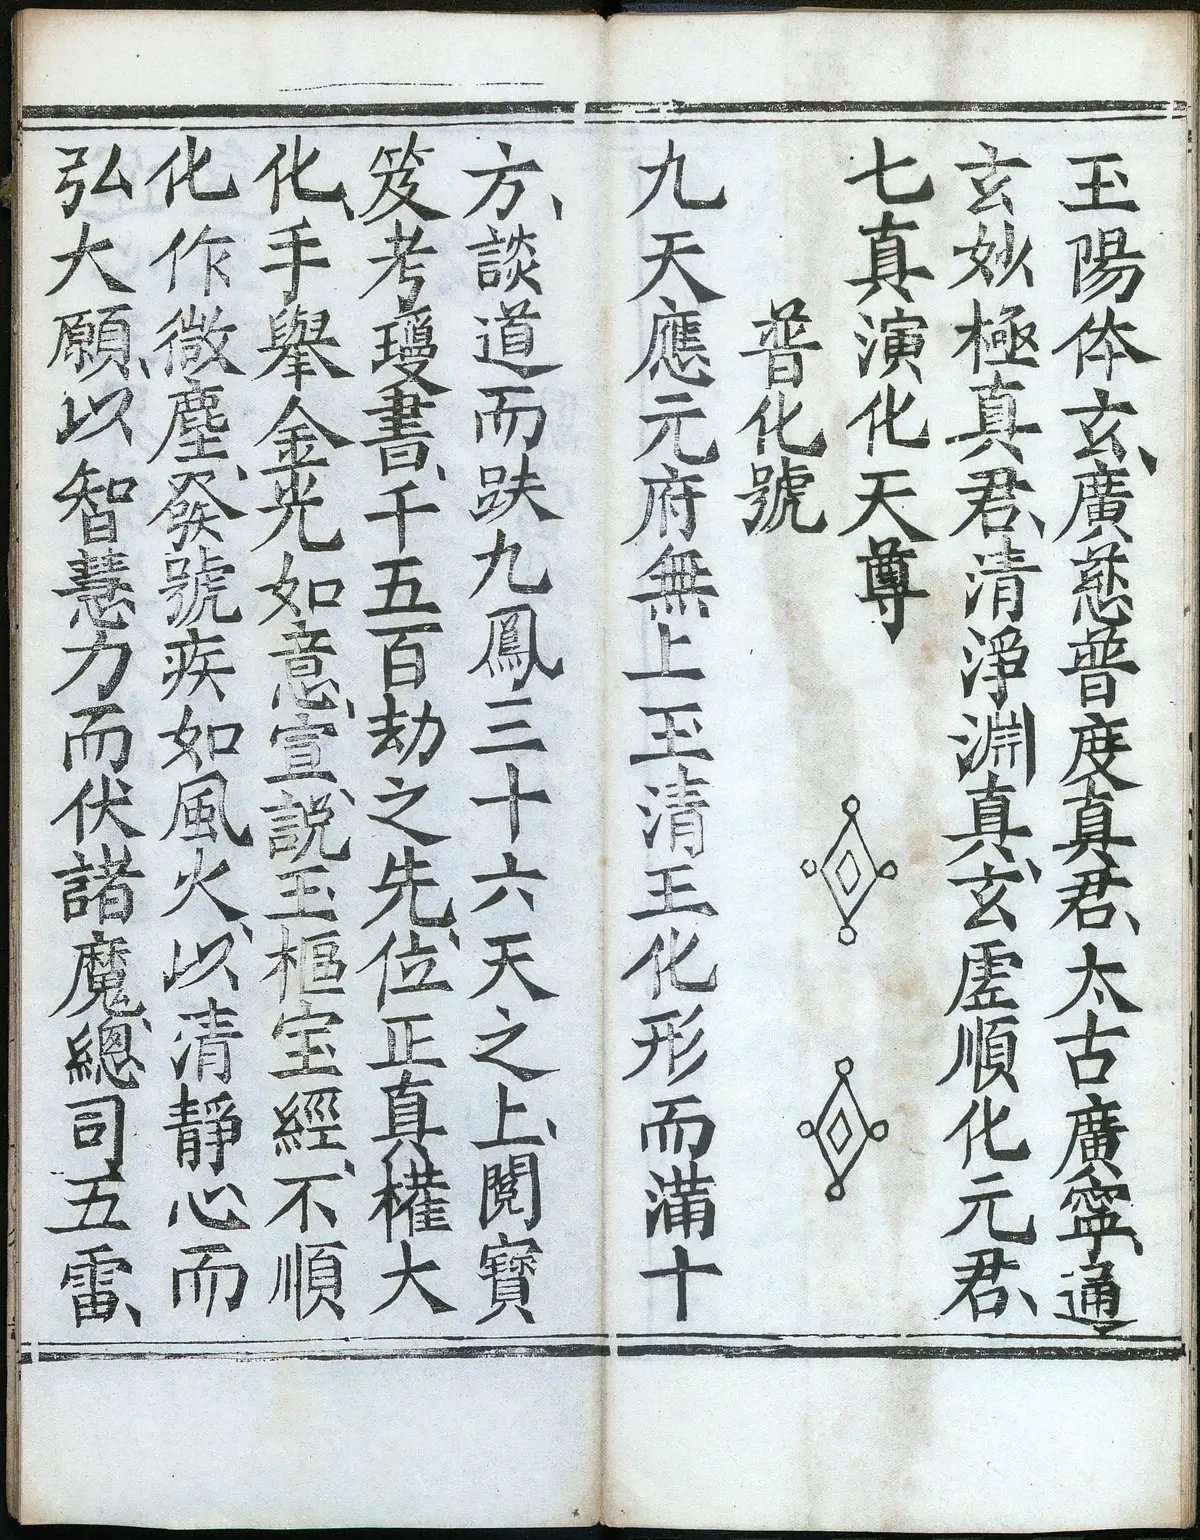 玉陽体玄、廣慈普度真君、太古廣寧、通
玄妙極真君、清淨淵真、玄虛順化元君、
七真演化天尊
普化號
九天應元府無上玉清王化形而滿十
方、談道而趺九鳳三十六天之上、閱寶
笈考瓊書、千五百劫之先、位正真權大
化、手舉金光如意、宣說玉樞宝經、不順
化作微塵、發號疾如風火、以清靜心而
弘大願、以智慧力而伏諸魔、總司五雷、